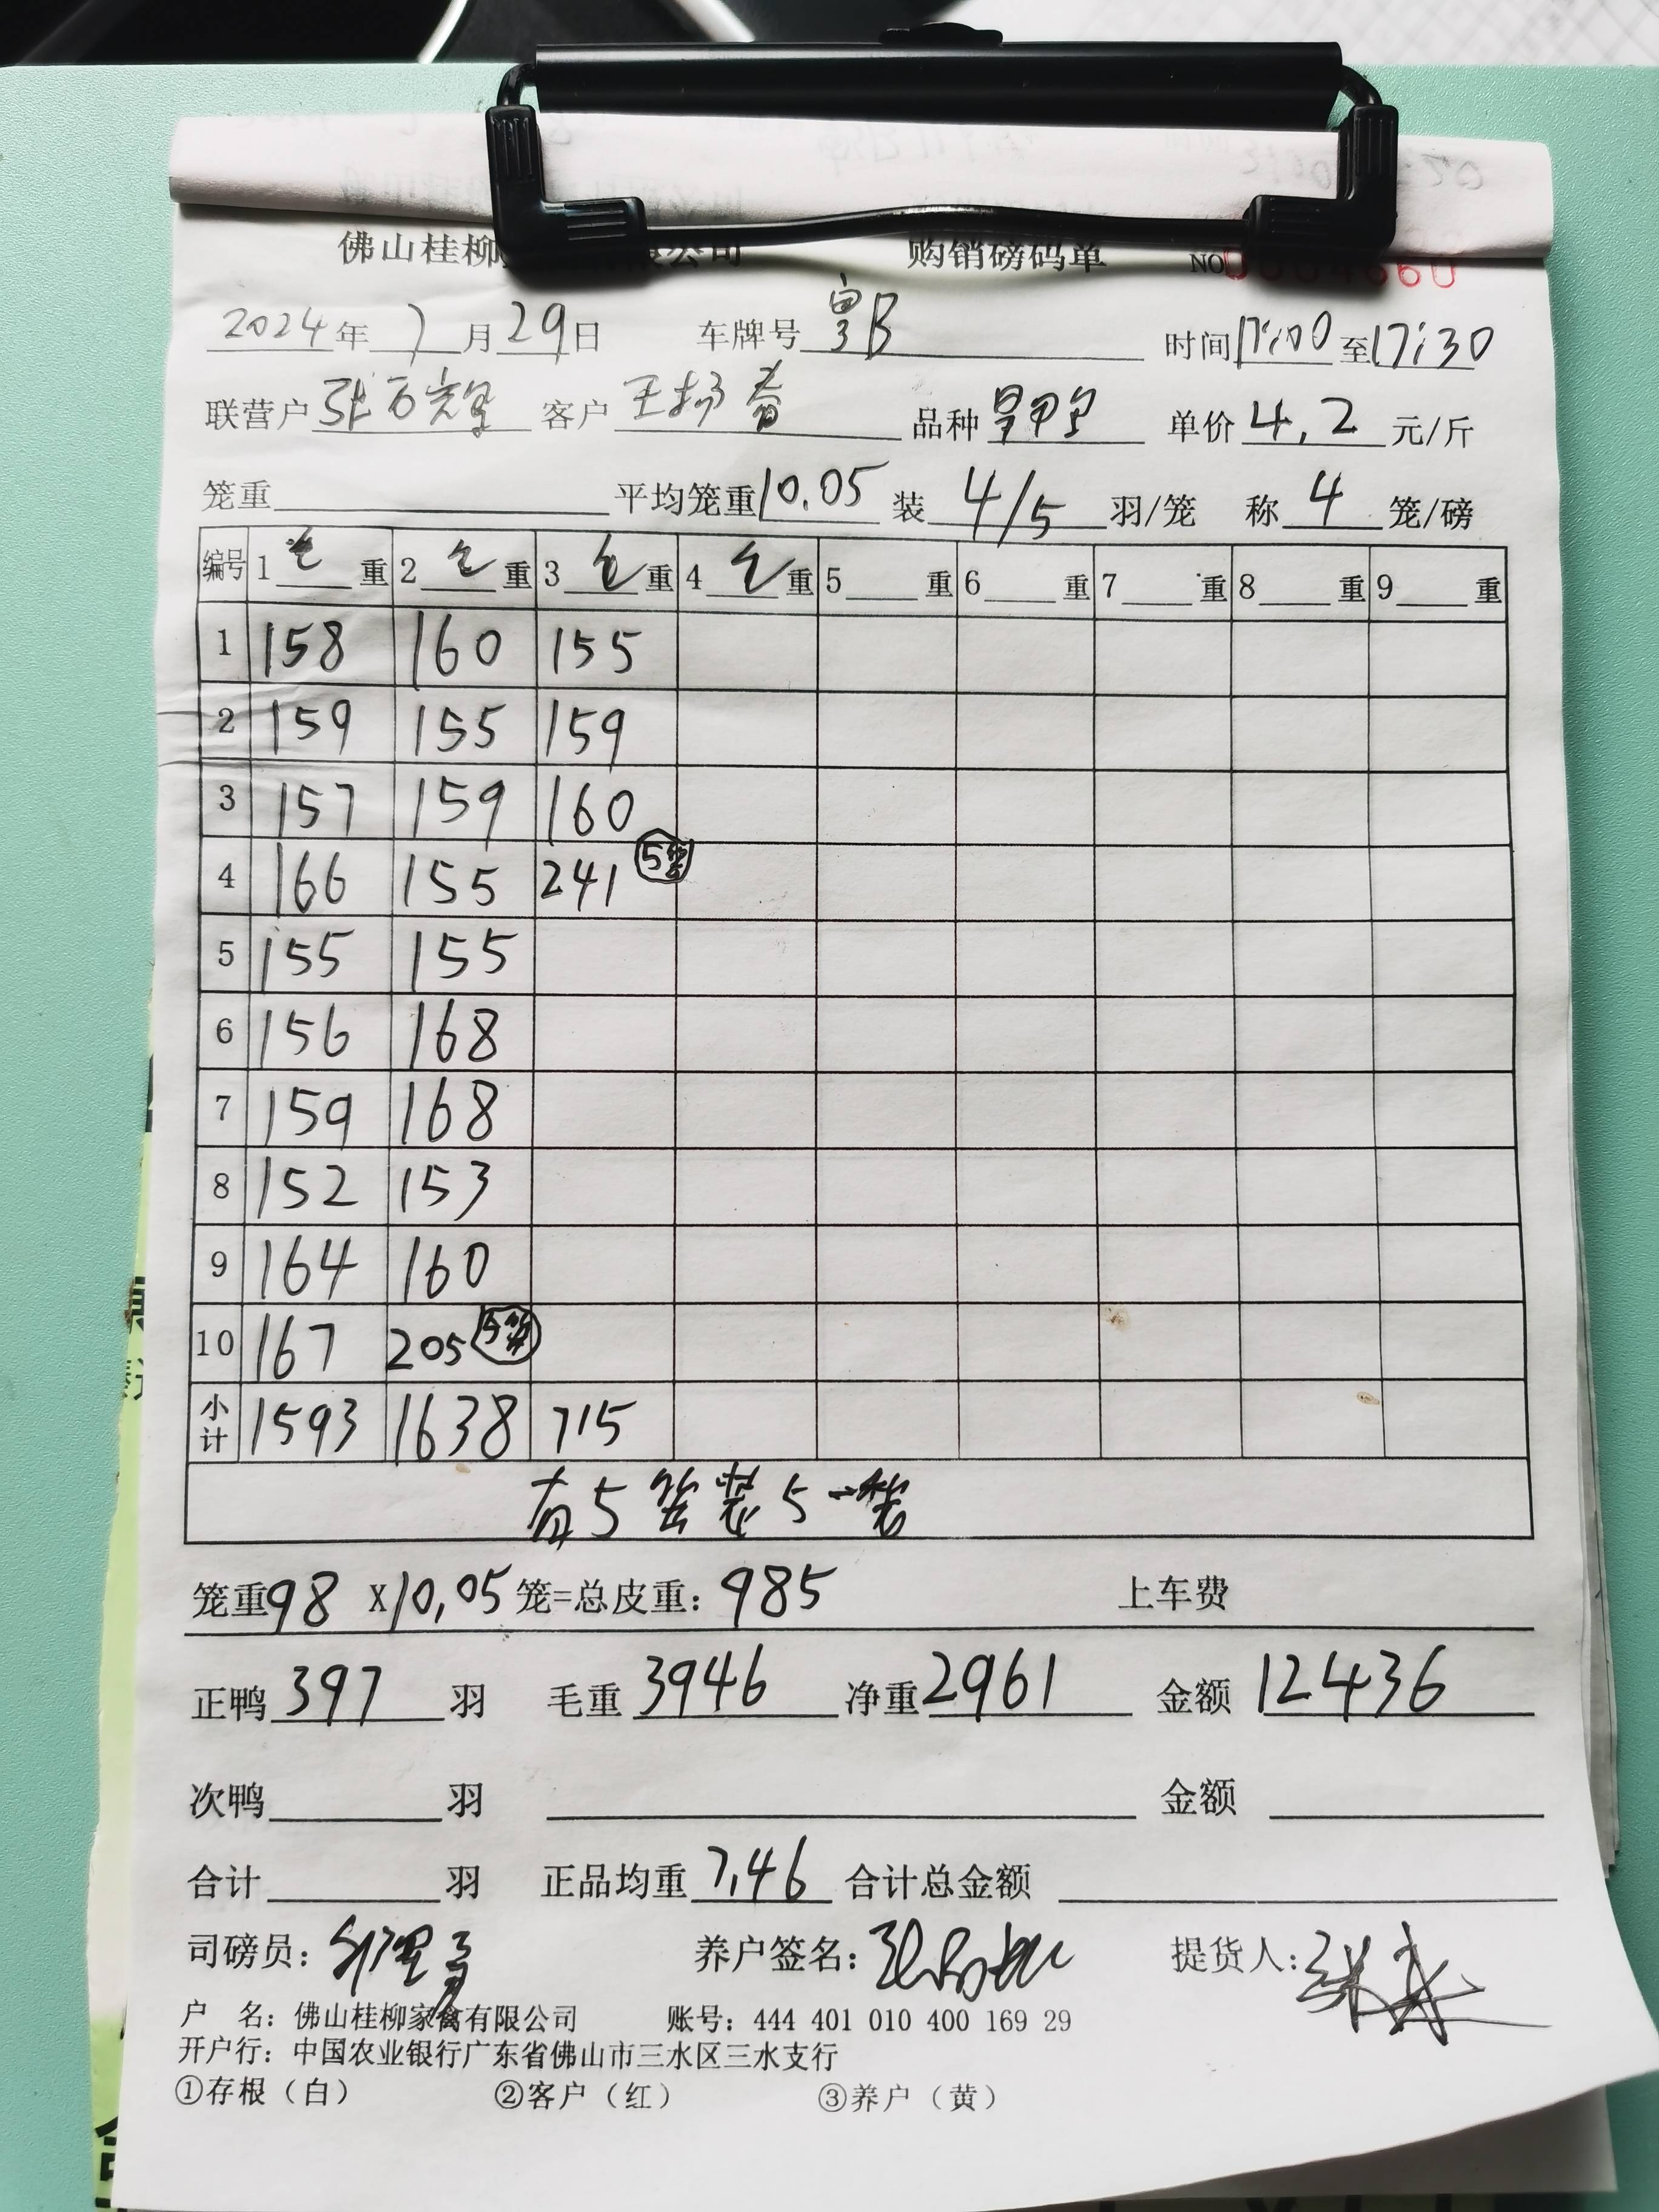 佛山桂柳 限公司 购销磅码单 NO
2024年7月29日 车牌号 皇B 时间17:00至17:30
联营户 客户 王扬 品种 单价4.2元/斤
笼重 平均笼重10.05 装4/5羽/笼 称4笼/磅
编号 1 毛重 2 毛重 3 毛重 4 毛重 5 重 6 重 7 重 8 重 9 重
1 158 160 155
2 159 155 159
3 157 159 160
4 166 155 241 5笼
5 155 155
6 156 168
7 159 168
8 152 153
9 164 160
10 167 205 5笼
小计 1593 1638 715
有5笼装5一笼
笼重98X10.05笼=总皮重:985 上车费
正鸭397羽 毛重3946 净重2961 金额12436
次鸭 羽 金额
合计 羽 正品均重7.46 合计总金额
司磅员: 养户签名: 提货人:
户 名:佛山桂柳家禽有限公司 账号:444 401 010 400 169 29
开户行:中国农业银行广东省佛山市三水区三水支行
①存根(白) ②客户(红) ③养户(黄)